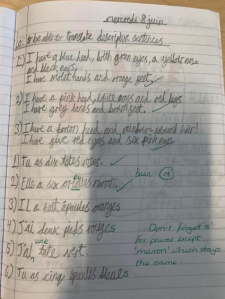 mercredi 8 juin
to be able to translate descriptive sentences
1) I have a blue head, both green eyes, a yellow nose
and black ears.
I have violet hands and orange feet.
2) I have a pink head, white arms and red legs.
I have grey hands and brown feet.
3) I have a brown head and
I have five red eyes and six pink eyes
1) Tu as dix têtes roses.
2) Elle a six têtes marron.
bien
3) Il a huit épaules rouges
4) J'ai deux pieds rouges
5) J'ai une tête vert
6) Tu as cinq épaules bleues
Don't forget 's'
for plural except
'marron' which stays
the same